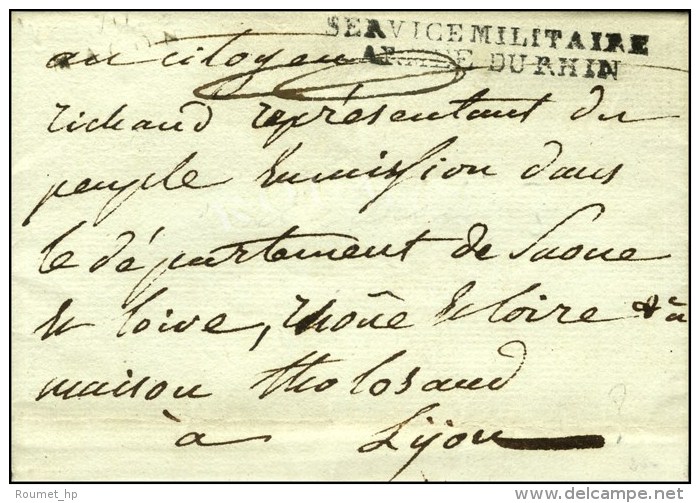 SERVICE MILITAIRE
ARMÉE DU RHIN
au citoyen
richaud représentant du
peuple En mission dans
le département de Saone
et loire, rhône et loire & a
maison tholozand
à Lyon
Roumet_hp
www.delcampe.net